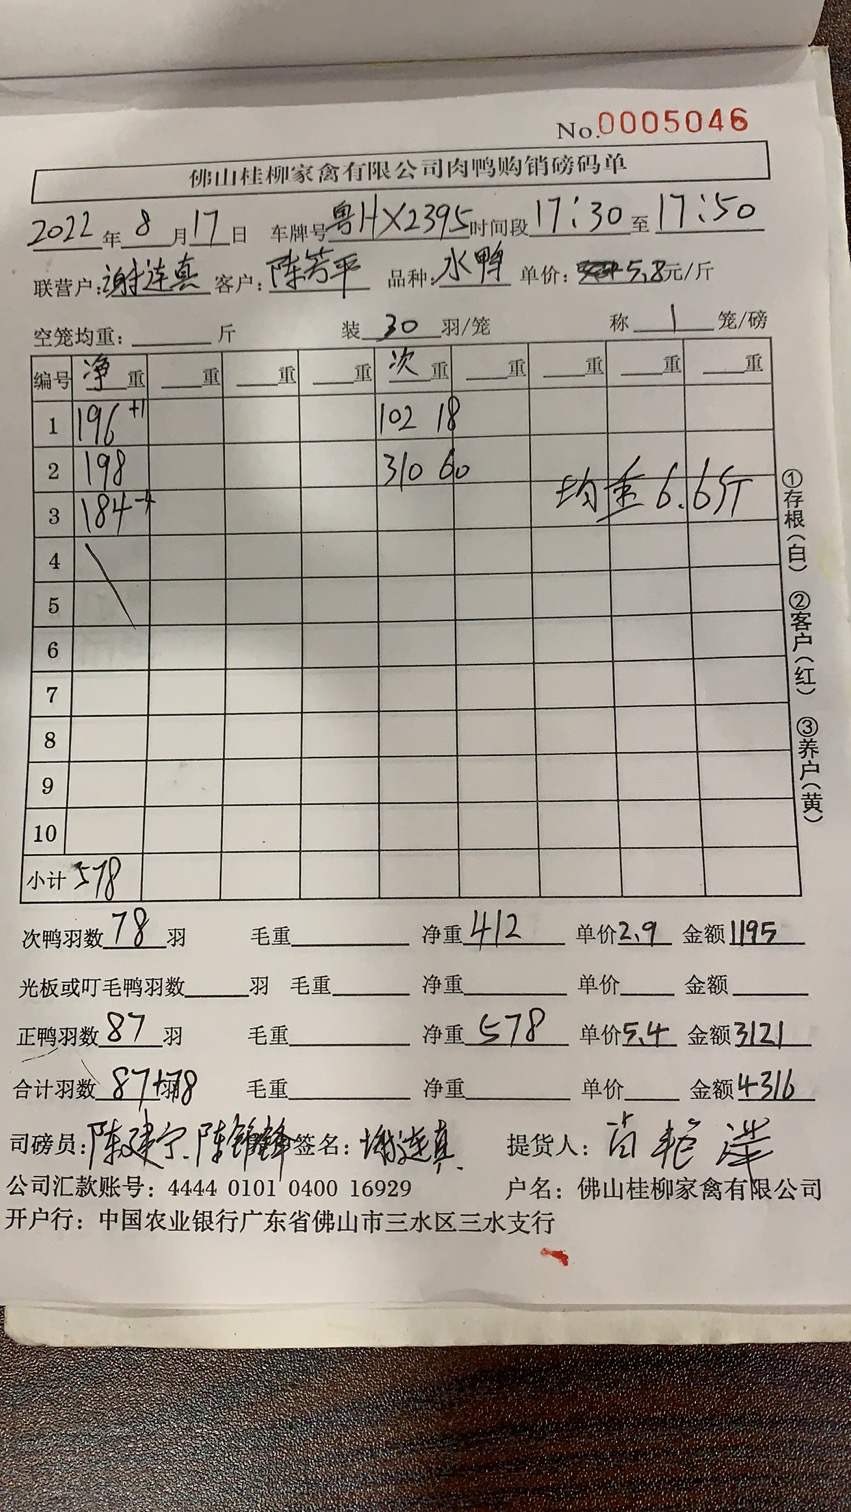 No.0005046
佛山桂柳家禽有限公司肉鸭购销磅码单
2022年8月17日 车牌号粤HX2395时间段17:30至17:50
联营户:谢连真 客户:陈芳平 品种:水鸭 单价: 5.8元/斤
空笼均重: 斤 装30羽/笼 称1笼/磅
编号 净重 重 重 重 次重 重 重 重 重
1 196+1 102 18
2 198 310 60
均重6.6斤
3 184-4
4
5
6
7
8
9
10
小计 578
①存根(白) ②客户(红) ③养户(黄)
次鸭羽数78羽 毛重 净重412 单价2.9 金额1195
光板或叮毛鸭羽数 羽 毛重 净重 单价 金额
正鸭羽数87羽 毛重 净重578 单价5.4 金额3121
合计羽数87+78羽 毛重 净重 单价 金额4316
司磅员:陈建宁、陈锦锋 签名:谢连真 提货人:
公司汇款账号: 4444 0101 0400 16929 户名: 佛山桂柳家禽有限公司
开户行: 中国农业银行广东省佛山市三水区三水支行